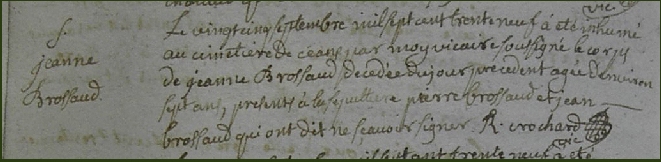 vic
S.
jeanne
Brossaud.
Le vingt cinq septembre mil sept cent trente neuf a été inhumé
au cimetière de ceans par moy vicaire soussigné le corps
de jeanne Brossaud decedée du jour precedent agée d'environ
sept ans, presents à la sepulture pierre brossaud et jean
brossaud qui ont dit ne scavoir signer. R. crochard
vic
mil sept cent trente neuf a été